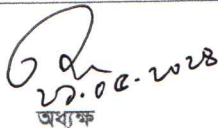 ২১.০৫.২০২৪
অধ্যক্ষ